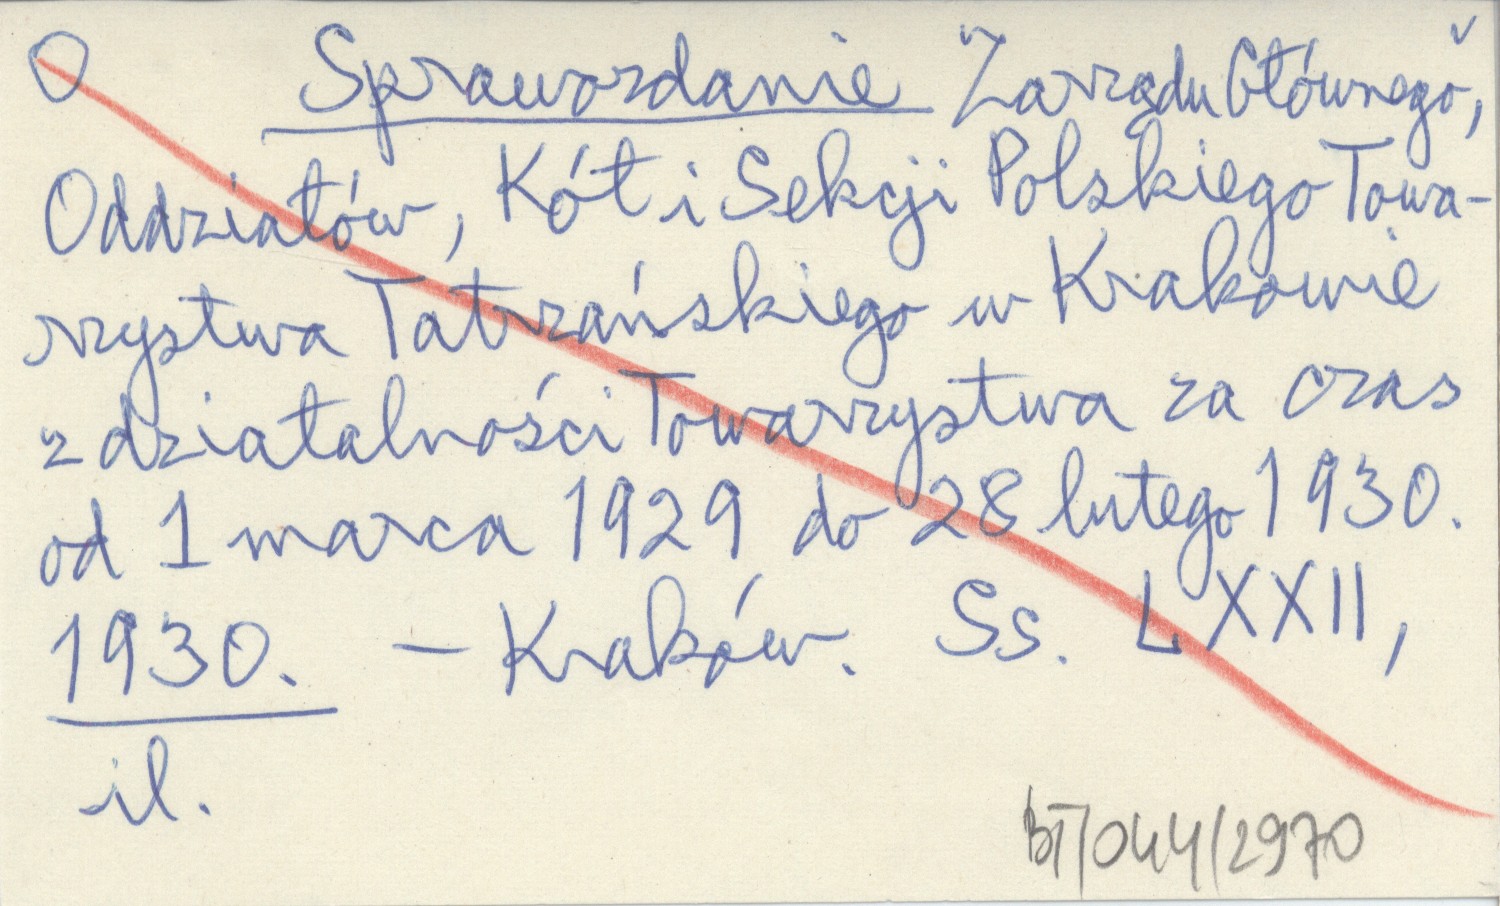 O Sprawozdanie Zarządu Głównego,
Oddziałów, Kół i Sekcji Polskiego Towa-
rzystwa Tatrzańskiego w Krakowie
z działalności Towarzystwa za czas
od 1 marca 1929 do 28 lutego 1930.
1930. – Kraków. Ss. LXXII,
il.
BT/044/2970